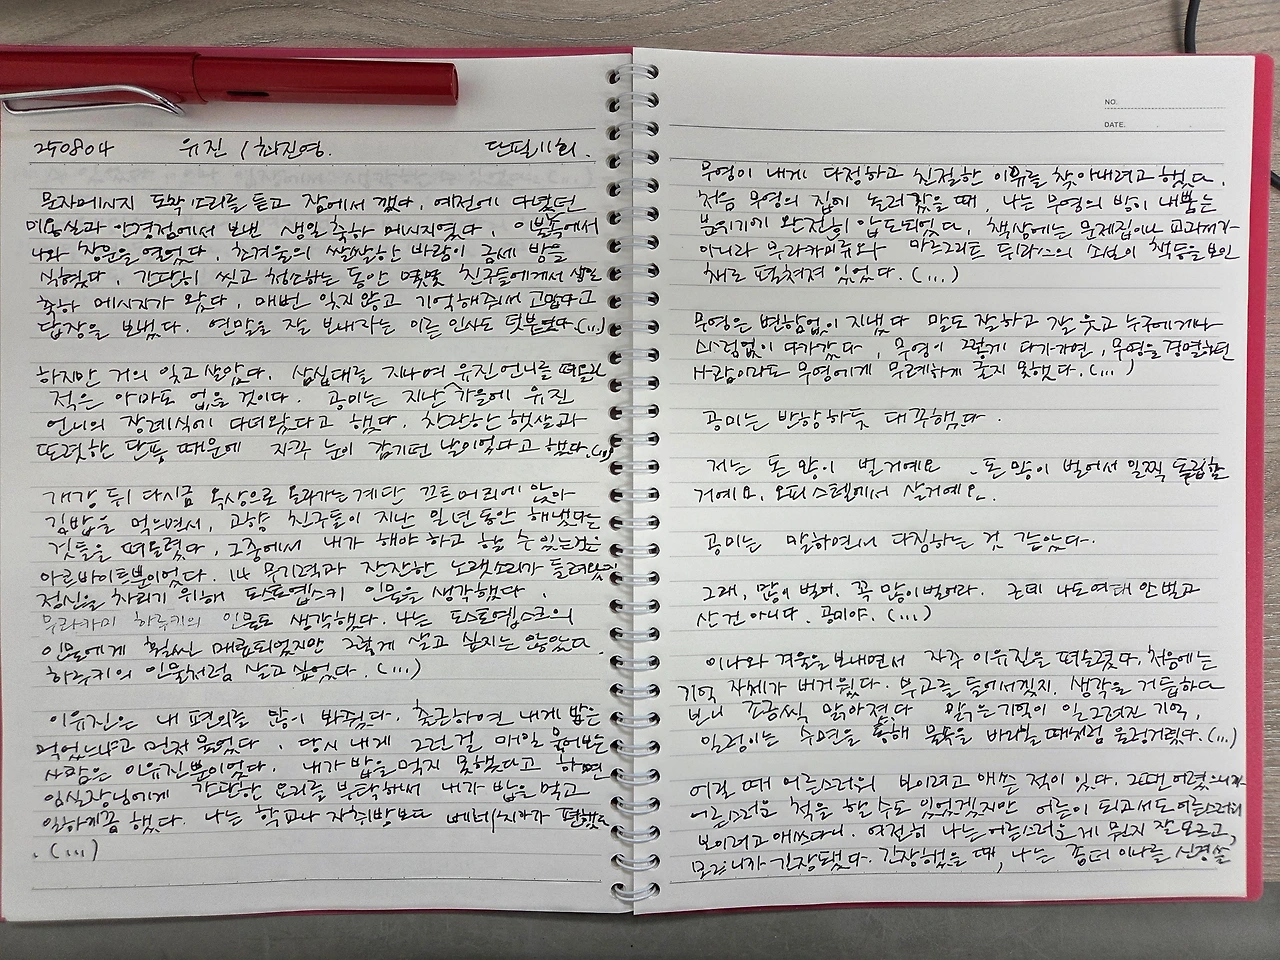 250804 유진 / 최진영. 단필사 1회.
문자메시지 도착 소리를 듣고 잠에서 깼다. 예전에 다녔던
미용실과 안경점에서 보낸 생일 축하 메시지였다. 이불속에서
나와 창문을 열었다. 초겨울의 쌀쌀한 바람이 금세 방을
식혔다. 간단히 씻고 청소하는 동안 몇몇 친구들에게서 생일
축하 메시지가 왔다. 매번 잊지 않고 기억해줘서 고맙다고
답장을 보냈다. 연말을 잘 보내라는 이른 인사도 덧붙였다.(...)
하지만 거의 잊고 살았다. 삼십대를 지나며 유진 언니를 떠올린
적은 아마도 없을 것이다. 공미는 지난 가을에 유진
언니의 장례식에 다녀왔다고 했다. 찬란한 햇살과
또렷한 단풍 때문에 자꾸 눈이 감기던 날이었다고 했다.(...)
개강 뒤 다시금 옥상으로 올라가는 계단 끄트머리에 앉아
김밥을 먹으면서, 고향 친구들이 지난 일 년 동안 해냈다는
것들을 떠올렸다. 그중에서 내가 해야 하고 할 수 있는 것은
아르바이트뿐이었다. 무기력과 잔잔한 노랫소리가 들려왔다
정신을 차리기 위해 도스토옙스키 인물을 생각했다.
무라카미 하루키의 인물도 생각했다. 나는 도스토옙스키의
인물에게 훨씬 매료되었지만 그렇게 살고 싶지는 않았다.
하루키의 인물처럼 살고 싶었다. (...)
이유진은 내 편의를 많이 봐줬다. 출근하면 내게 밥은
먹었느냐고 먼저 물었다. 당시 내게 그런 걸 매일 물어보는
사람은 이유진뿐이었다. 내가 밥을 먹지 못했다고 하면
임실장님에게 간단한 요리를 부탁해서 내가 밥을 먹고
일하게끔 했다. 나는 학교나 자취방보다 편했
. (...)
NO.
DATE.
무영이 내게 다정하고 친절한 이유를 찾아내려고 했다.
처음 무영의 집에 놀러 갔을 때, 나는 무영의 방이 내뿜는
분위기에 완전히 압도되었다. 책상에는 문제집이나 교과서가
아니라 무라카미 류와 마르그리트 뒤라스의 소설이 책등을 보인
채로 펼쳐져 있었다. (...)
무영은 변함없이 지냈다 말도 잘하고 잘 웃고 누구에게나
스스럼없이 다가갔다. 무영이 그렇게 다가가면, 무영을 경멸하던
사람이라도 무영에게 무례하게 굴지 못했다. (...)
공미는 반항하듯 대꾸했다.
저는 돈 많이 벌 거예요. 돈 많이 벌어서 일찍 독립할
거예요. 오피스텔에서 살 거예요.
공미는 말하면서 다짐하는 것 같았다.
그래, 많이 벌어. 꼭 많이 벌어라. 근데 나도 여태 안 벌고
산 건 아니다. 공미야. (...)
이나와 겨울을 보내면서 자주 이유진을 떠올렸다. 처음에는
기억 자체가 버거웠다. 부고를 들어서겠지. 생각을 거듭하다
보니 조금씩 맑아졌다 맑은 기억이 일그러진 기억.
일렁이는 수면을 통해 물속을 바라볼 때처럼 울렁거렸다. (...)
어릴 때 어른스러워 보이려고 애쓴 적이 있다. 그땐 어렸으니까
어른스러운 척을 할 수도 있었겠지만 어른이 되고서도 어른스러워
보이려고 애쓰다니. 여전히 나는 어른스러운 게 뭔지 잘 모르고,
모르니까 긴장됐다. 긴장했을 때, 나는 좀더 이나를 신경쓸